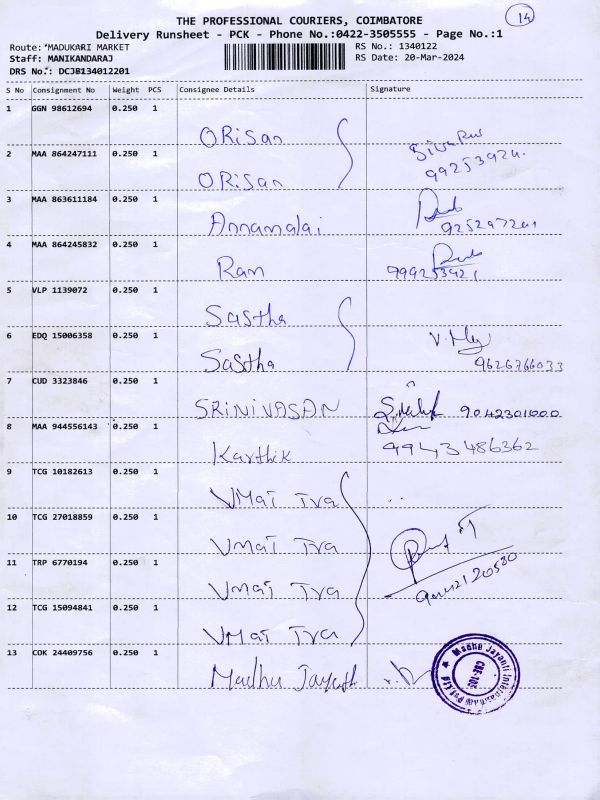 14
THE PROFESSIONAL COURIERS, COIMBATORE
Delivery Runsheet - PCK - Phone No.:0422-3505555 - Page No.:1
Route: *MADUKARI MARKET
RS No.: 1340122
Staff: MANIKANDARAJ
RS Date: 20-Mar-2024
DRS No.: DCJB134012201
S No Consignment No Weight PCS Consignee Details Signature
1 GGN 98612694 0.250 1 ORiSan
2 MAA 864247111 0.250 1 ORiSan
99253924.
3 MAA 863611184 0.250 1 Annamalai
4 MAA 864245832 0.250 1 Ram
999253921
5 VLP 1139072 0.250 1 Sastha
6 EDQ 15006358 0.250 1 Sastha
9626766033
7 CUD 3323846 0.250 1 SRINIVASAN 9042301000
8 MAA 944556143 0.250 1 Karthik 9943486362
9 TCG 10182613 0.250 1 VMaT Tra
10 TCG 27018859 0.250 1 VmaT Tra
11 TRP 6770194 0.250 1 VmaT Tra
12 TCG 15094841 0.250 1 VmaT Tra
13 COK 24409756 0.250 1 Madhu